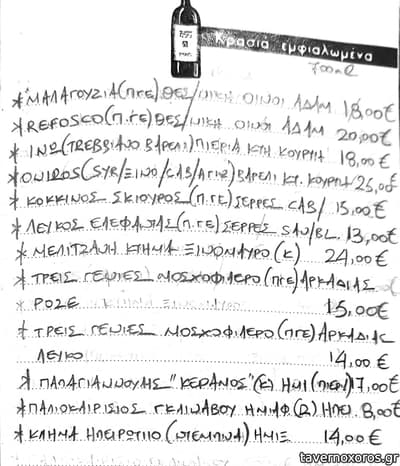 Κρασιά εμφιαλωμένα
700ml
*ΜΑΛΑΓΟΥΖΙΑ(ΠΓΕ)ΘΕΣ/ΝΙΚΗ ΟΙΝΟΙ ΑΔΑΜ 18,00€
*REFOSCO(Π.ΓΕ)ΘΕΣ/ΝΙΚΗ ΟΙΝΟΙ ΑΔΑΜ 20,00€
* ΙΝΩ(TREBBIANO ΒΑΡΕΛΙ)ΠΙΕΡΙΑ ΚΤΗ ΚΟΥΡΤΗ 18,00€
*ΟΝΙROS(SYR/ΞΙΝΟ/CAB/ΑΓΙΩ)ΒΑΡΕΛΙ ΚΤ. ΚΟΥΡΤΗ 25,00€
* ΚΟΚΚΙΝΟΣ ΣΚΙΟΥΡΟΣ(Π.ΓΕ)ΣΕΡΡΕΣ CAB/ 15,00€
*ΛΕΥΚΟΣ ΕΛΕΦΑΝΤΑΣ(Π.ΓΕ)ΣΕΡΡΕΣ SAV/BL. 13,00€
* ΜΕΛΙΤΖΑΝΗ ΚΤΗΜΑ ΞΙΝΟΜΑΥΡΟ(Κ) 24,00€
* ΤΡΕΙΣ ΓΕΝΙΕΣ ΜΟΣΧΟΦΙΛΕΡΟ(ΠΓΕ)ΑΡΚΑΔΙΑΣ
* ΡΟΖΕ 15,00€
* ΤΡΕΙΣ ΓΕΝΙΕΣ ΜΟΣΧΟΦΙΛΕΡΟ(ΠΓΕ)ΑΡΚΑΔΙΑΣ
ΛΕΥΚΟ 14,00€
* ΠΑΠΑΓΙΑΝΝΟΥΛΗΣ "ΚΕΡΑΝΟΣ"(Ε) ΗΜΙ 17,00€
*ΠΑΛΙΟΚΑΙΡΙΣΙΟΣ ΓΚΛΙΝΑΒΟΥ ΗΜΙΑΦ(Ω) ΗΠΕΙ. 8,00€
*ΚΛΗΜΑ ΗΠΕΙΡΩΤΙΚΟ (ΝΤΕΜΠΙΝΑ) ΗΜΙΞ 14,00€
tavernoxoros.gr